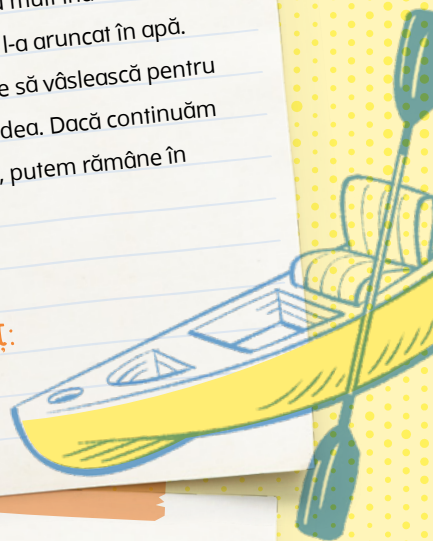 l-a aruncat în apă.
să vâslească pentru
Dacă continuăm
, putem rămâne în